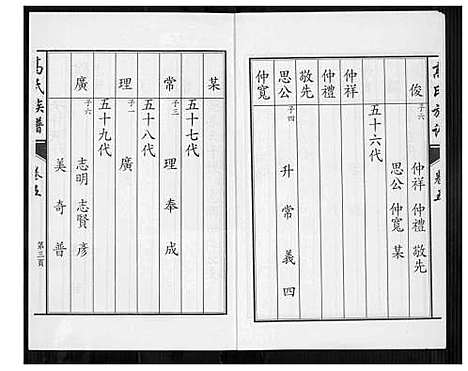 高氏族譜
卷五
俊 子六 仲祥 仲禮 敬先
思公 仲寬 某
五十六代
仲祥
仲禮
敬先
思公 子四 升 常 義 四
仲寬
某
五十七代
常 子三 理 奉 成
五十八代
理 子一 廣
五十九代
廣 子六 志明 志賢 彥
美 奇 普
高氏族譜
卷五
第三頁